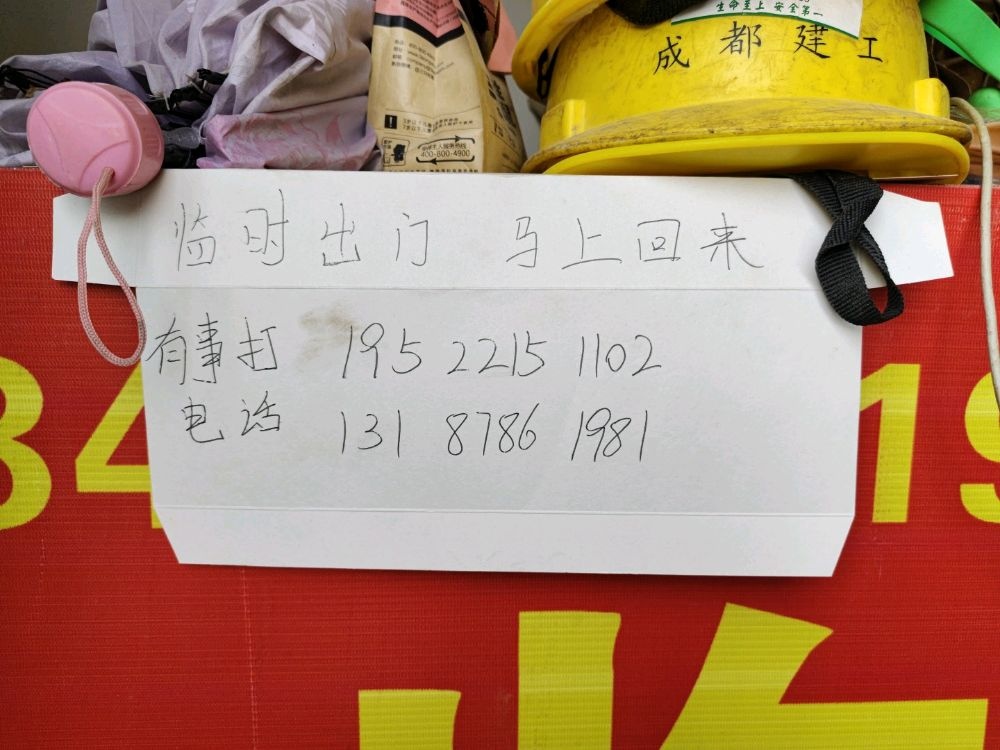 生命至上 安全第一
成都建工
400-800-4900
临时出门 马上回来
有事打 195 2215 1102
电话 131 8786 1981
84
19